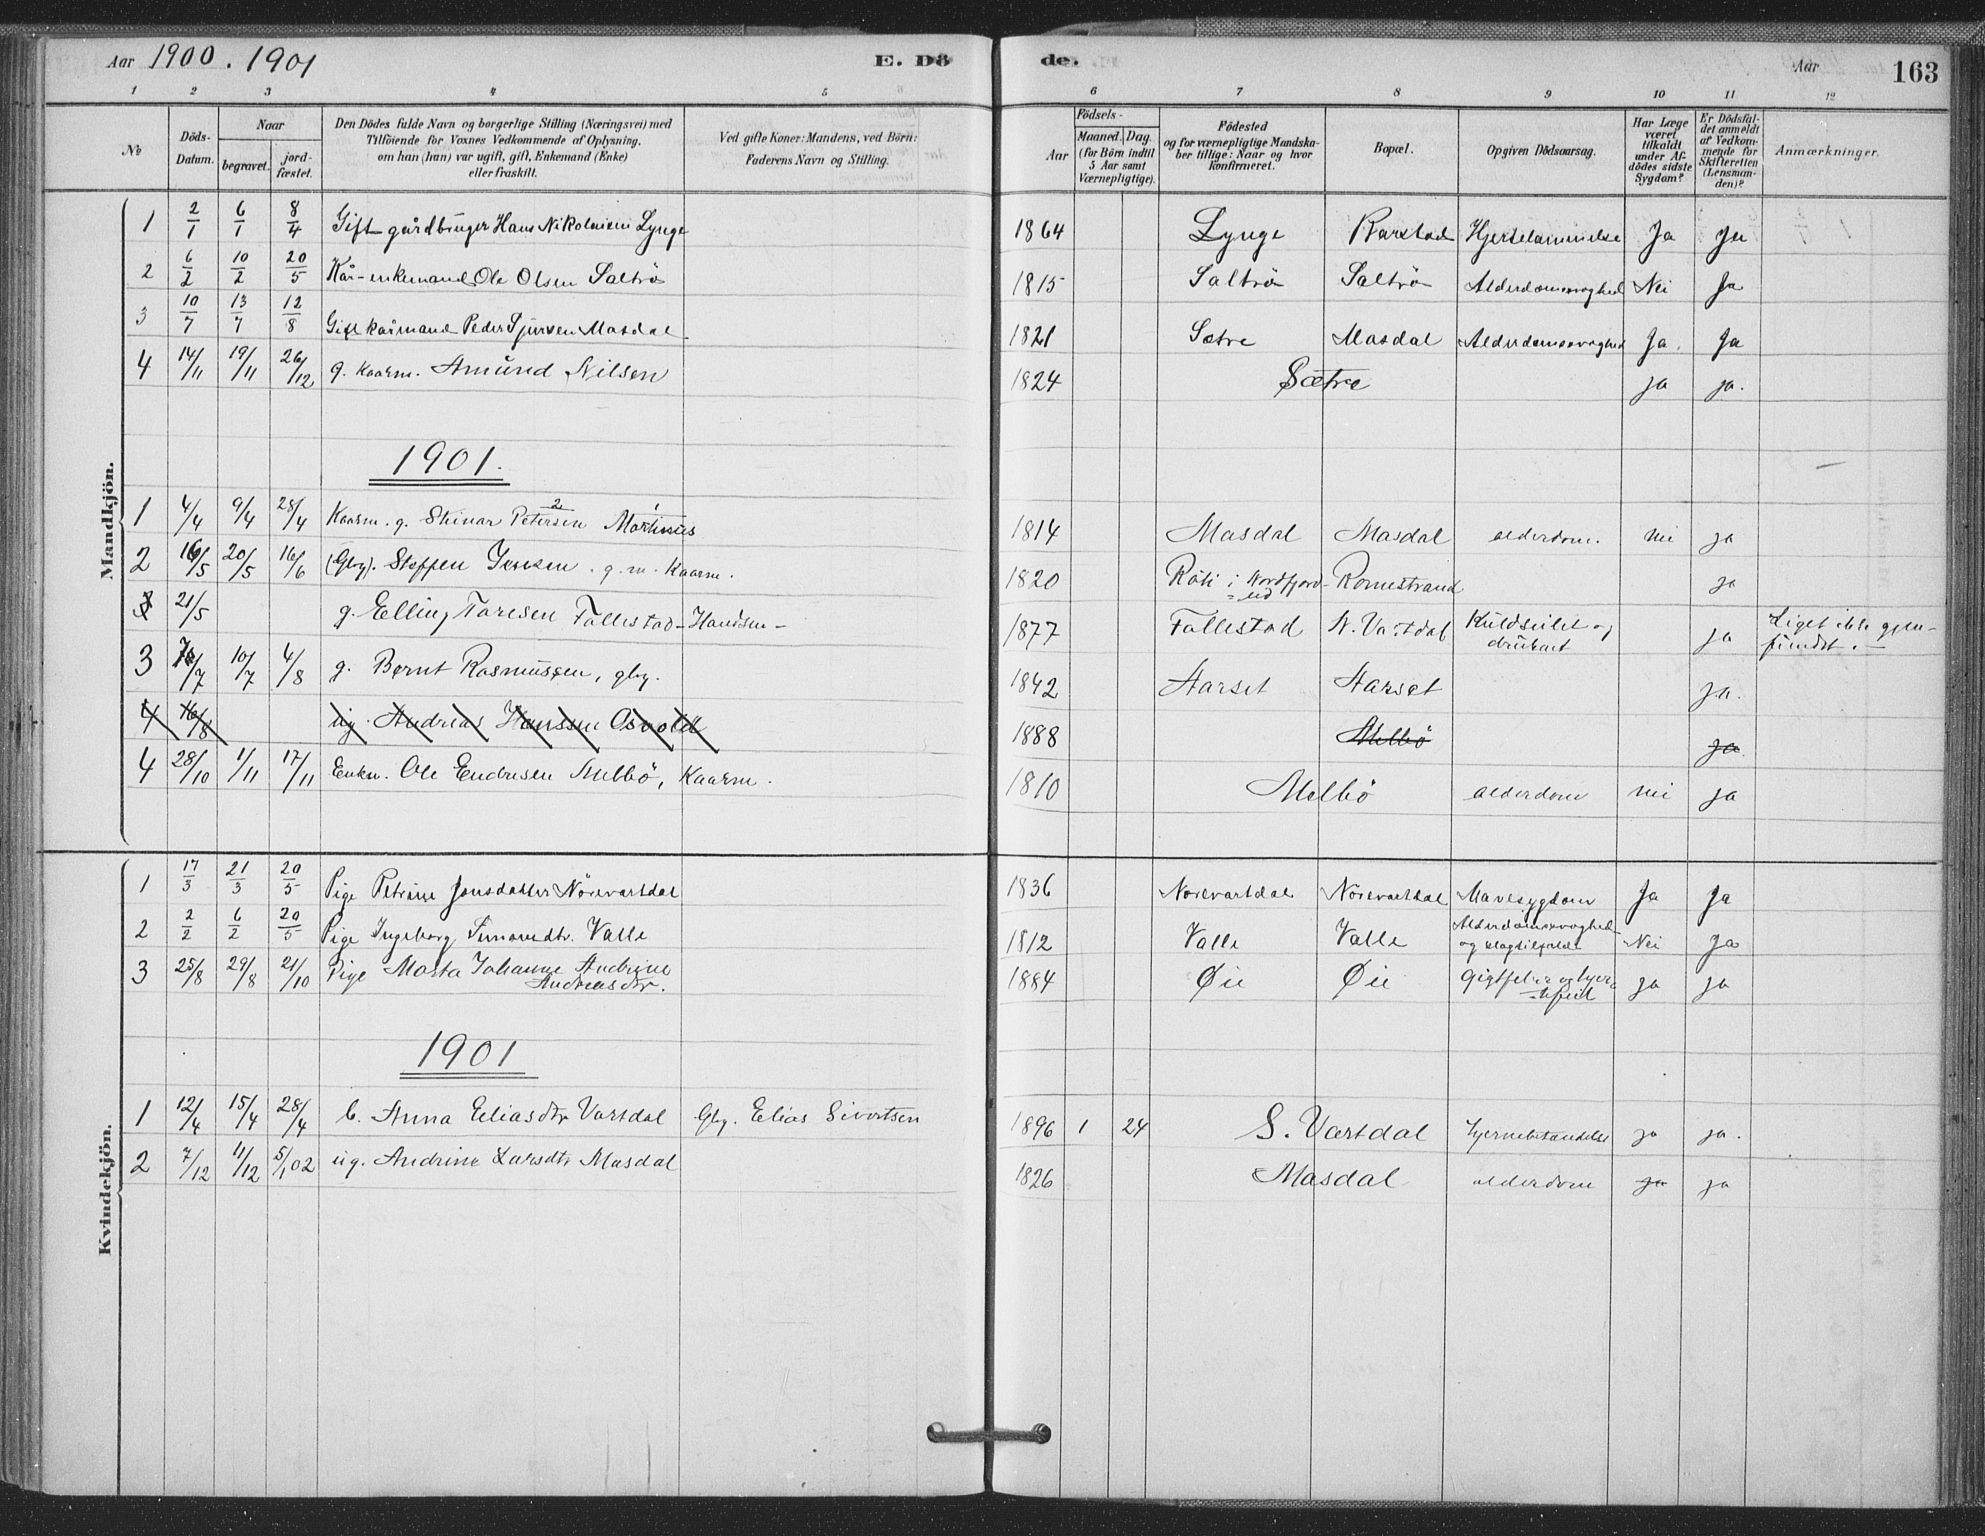 Aar 1900. 1901 E. Dö de. Aar 163
1 2 3 4 5 6 7 8 9 10 11 12
№ Döds-Datum. Naar begravet. jord-fæstet. Den Dödes fulde Navn og borgerlige Stilling (Næringsvei) med Tilföiende for Voxnes Vedkommende af Oplysning, om han (hun) var ugift, gift, Enkemand (Enke) eller fraskilt. Ved gifte Koner: Mandens, ved Börn: Faderens Navn og Stilling. Aar Födsels- Maaned. Dag. (for Börn indtil 5 Aar samt Værnepligtige). Födested og for værnepligtige Mandskaber tillige: Naar og hvor Konfirmeret. Bopæl. Opgiven Dödsaarsag. Har Læge været tilkaldt under Afdödes sidste Sygdom? Er Dödsfaldet anmeldt af Vedkommende for Skifteretten (Lensmanden)? Anmærkninger.
Mandkjön.
1 2/1 6/1 8/4 Gift gårdbruger Hans Nikolaisen Lynge 1864 Lynge Barstad Hjertelammelse Ja Ja
2 6/2 10/2 20/5 Kår-enkemand Ole Olsen Saltrö 1815 Saltrö Saltrö Alderdomssvaghed Nei Ja
3 10/7 13/7 12/8 Gift kårmand Peder Sjursen Masdal 1821 Sætre Masdal Alderdomssvaghed Ja. Ja
4 14/11 19/11 26/12 g. kaarm. Amund Nilsen 1824 Sætre ja ja.
1901.
1 4/4 9/4 28/4 Kaarm. g. Steinar Petersen 2 Martinus 1 1814 Masdal Masdal alderdom. nei ja
2 16/5 20/5 16/6 (Gbg). Steffen Iversen. g. m. Kaarm. 1820 i Nordfjord-eid Romestrand ja
3 21/5 g. Elling Taresen Fallestad-Handsen- 1877 Fallestad N. Vartdal Kuldseilet og druknet ja Liget ikke gjen-fundet.-
3 7/7 10/7 4/8 g. Bernt Rasmussen, gbg. 1842 Aarset Aarset ja.
4 16/8 ug. Andreas Hanssen Osvold 1888 Melbö ja
4 28/10 1/11 17/11 Enkm. Ole Endresen Melbö, Kaarm. 1810 Melbö alderdom nei ja
Kvindekjön.
1 17/3 21/3 20/5 Pige Petrine Jonsdatter Nörevartdal 1836 Nörevartdal Nörevartdal Mavesygdom Ja Ja
2 2/2 6/2 20/5 Pige Ingeborg Simonsdtr. Valle 1812 Valle Valle Alderdomssvaghed og slagtilfælde Nei Ja
3 25/8 29/8 21/10 Pige Marta Johanne Andrine Andreasdtr. 1884 Øie Øie Gigtfeber og hjer-tefeil ja ja
1901
1 12/4 15/4 28/4 b. Anna Eliasdtr Vartdal Gbg. Elias Sivertsen 1896 1 24 S. Vartdal hjernebetændelse ja ja.
2 7/12 11/12 5/1 02 ug. Andrine Larsdtr Masdal 1826 Masdal alderdom ja ja